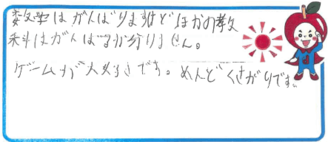 数学はがんばりますけどほかの教
科はがんばるか分りません。
ゲームが大好きです。めんどくさがりです。